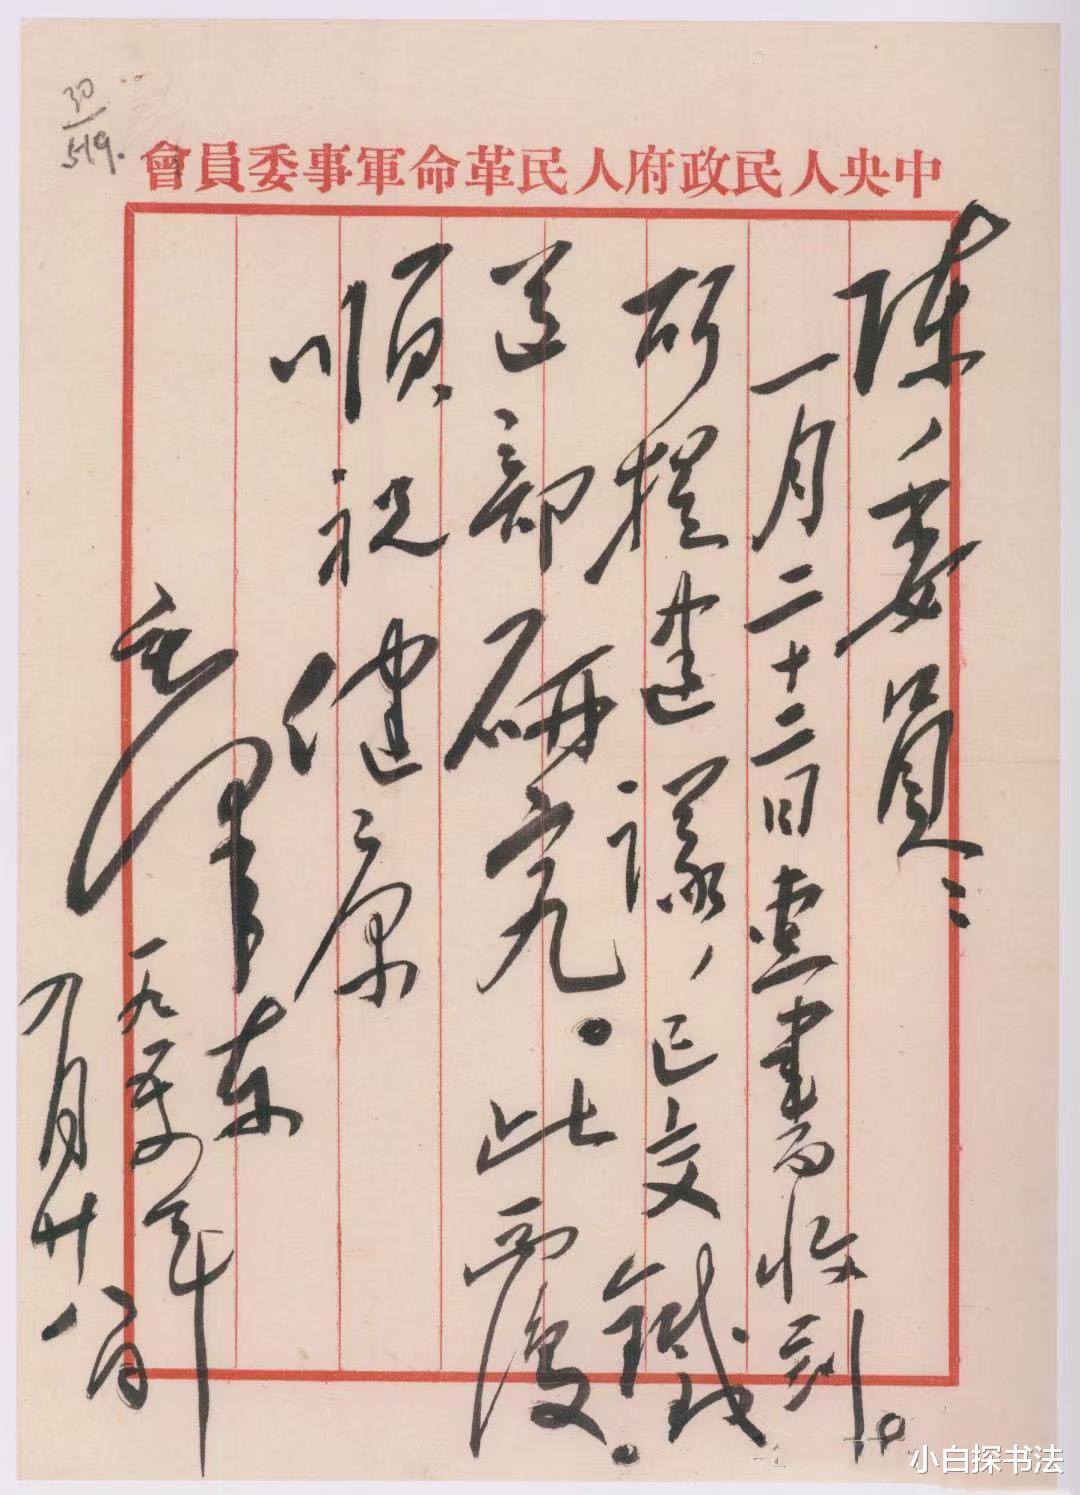 30/519.
中央人民政府人民革命軍事委員會
陳委員：
一月二十二日惠書收到。
所提建議，已交鐵
道部研究。此覆。
順祝健康
毛澤東
一九五年
一月廿八日
小白探书法